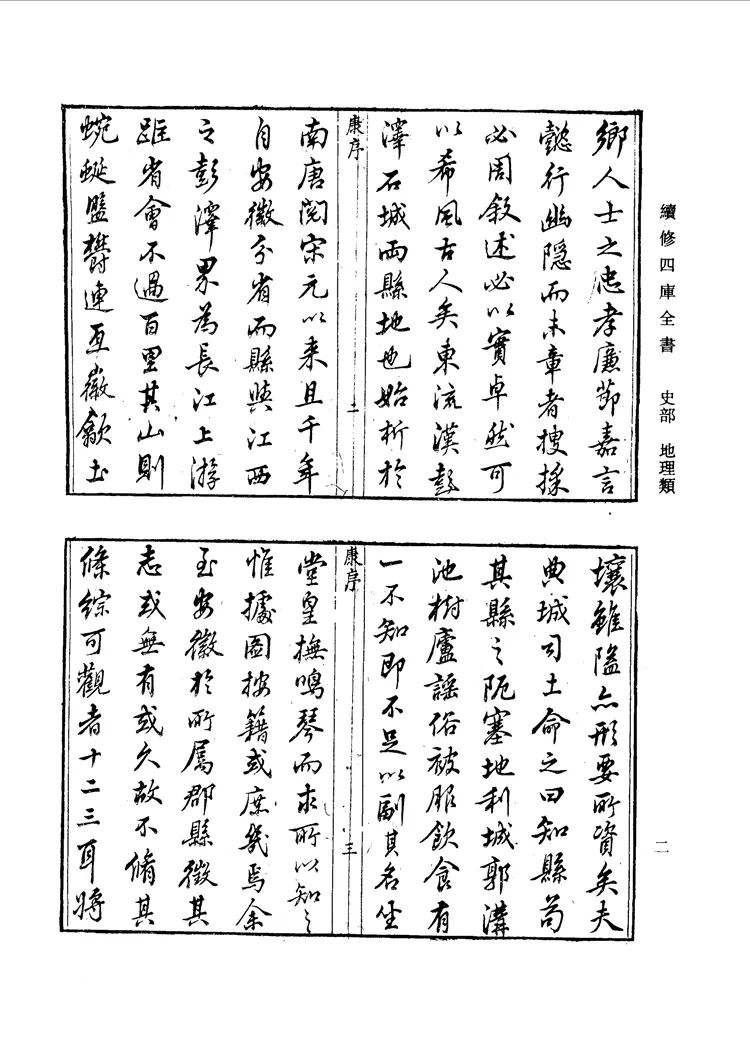 續修四庫全書 史部 地理類
二
鄉人士之忠孝廉節嘉言
懿行幽隱而未章者搜採
必周敘述必以實卓然可
以希風古人矣東流漢彭
澤石城兩縣地也始析於
康序 二
南唐閱宋元以来且千年
自安徽分省而縣與江西
之彭澤界為長江上游
距省會不過百里其山則
蜿蜒盤欝連亙徽歙土
壤雖隘亦形要所資矣夫
典城司土命之曰知縣苟
其縣之阨塞地利城郭溝
池樹廬謡俗被服飲食有
一不知即不足以副其名坐
康序 三
堂皇撫鳴琴而求所以知之
惟據圖按籍或庶幾焉余
至安徽於所屬郡縣徵其
志或無有或久故不脩其
條綜可觀者十二三耳將